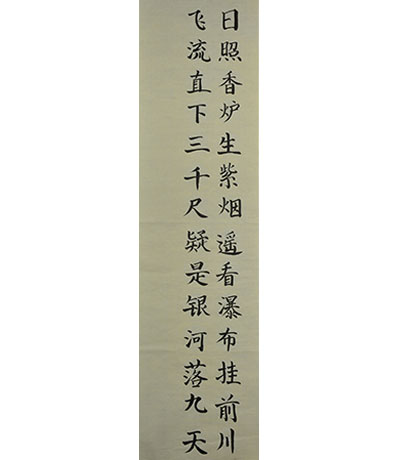 日照香炉生紫烟遥看瀑布挂前川
飞流直下三千尺疑是银河落九天